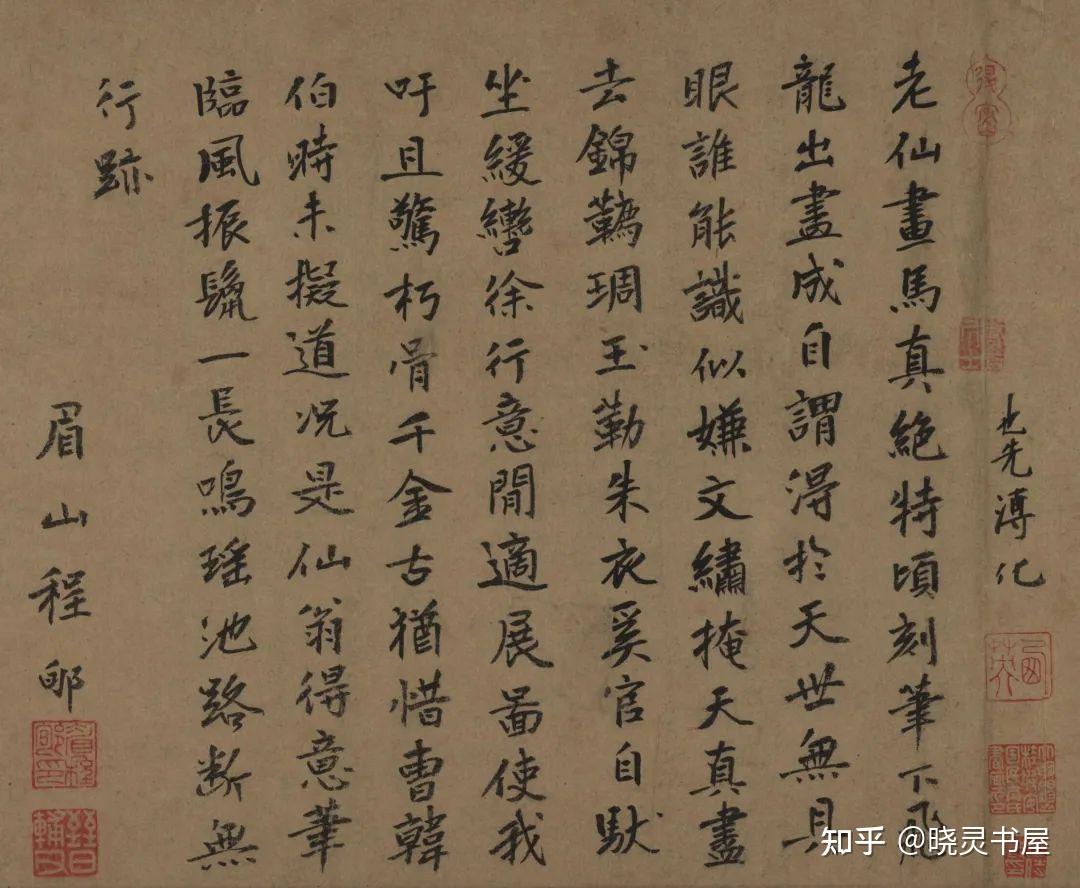 也先溥化
老仙畫馬真絕特頃刻筆下飛
龍出畫成自謂得於天世無具
眼誰能識似嫌文繡掩天真盡
去錦韉琱玉勒朱衣奚官自馱
坐緩轡徐行意閒適展圖使我
吁且驚朽骨千金古猶惜曹韓
伯時未擬道況是仙翁得意筆
臨風振鬣一長鳴瑤池路斷無
行跡
眉山程郇
知乎 @晓灵书屋